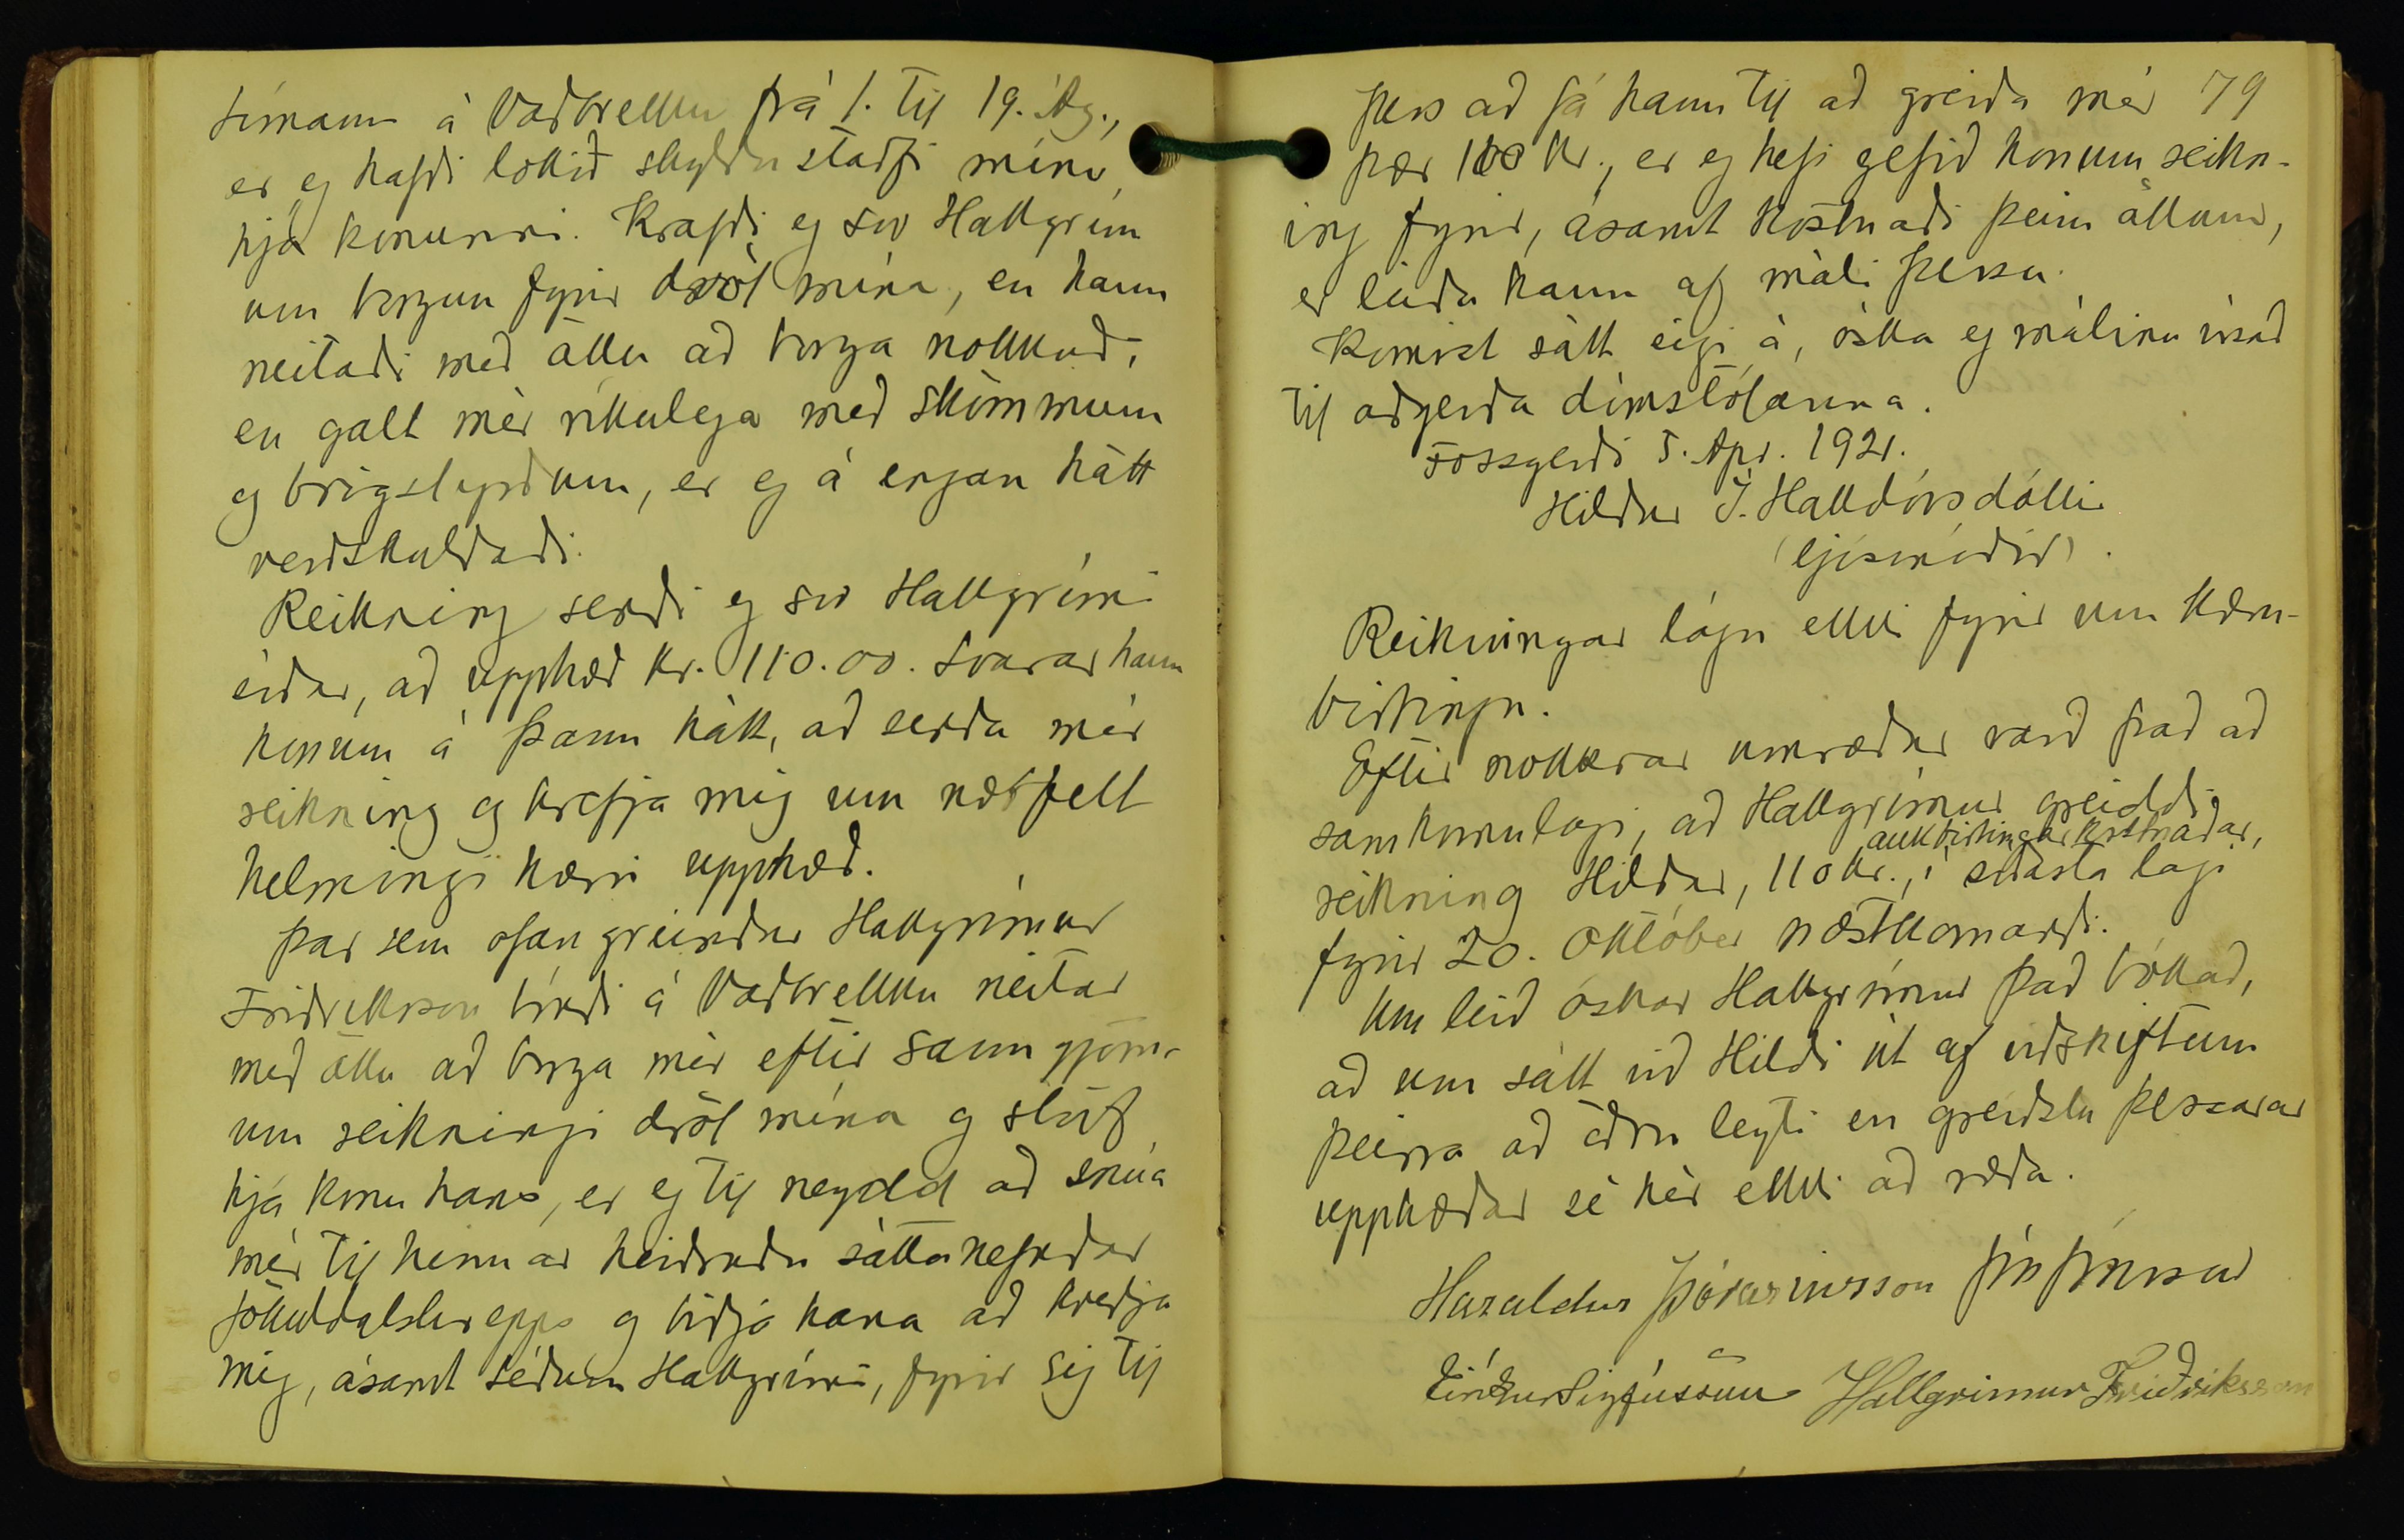 tímann á Vaðbrekku frá 1. til 19. Ág.,
er eg hafði lokið skyldustarfi mínu
hjá konunni. Krafði eg svo Hallgrím
um borgun fyrir dvöl mína, en hann
neitaði með öllu að borga nokkuð,
en galt mér ríkulega með skömmum
og brigslyrðum, er eg á engan hátt
verðskuldaði.
Reikning sendi eg svo Hallgrími
síðar, að upphæð kr. 110.00. Svarar hann
honum á þann hátt, að senda mér
reikning og krefja mig um nær fellt
helmingi hærri upphæð.
Þar sem ofangreindur Hallgrímur
Friðriksson bóndi á Vaðbrekku neitar
með öllu að borga mér eftir sanngjörn-
um reikningi dvöl mína og störf
hjá konu hans, er eg til neydd að snúa
mér til hinnar heiðruðu sáttanefndar
Jökuldalshrepps og biðja hana að kveðja
mig, ásamt téðum Hallgrími, fyrir sig til
þess að fá hann til að greiða mér 79
þær 110 kr., er eg hefi gefið honum reikn-
ing fyrir, ásamt kostnaði þeim öllum,
er leiða kann af máli þessu.
Komist sátt eigi á, óska eg málinu vísað
til aðgerða dómstólanna.
Fossgerði 5. Apr. 1921.
Hildur J. Halldórsdóttir
(ljósmóðir).
Reikningar lágu ekki fyrir um kæru-
birtingu.
Eftir nokkrar umræður varð það að
samkomulagi, að Hallgrímur greiddi
auk birtingarkostnaðar,
reikning Hildar, 110 kr., í síðasta lagi
fyrir 20. Október næstkomandi.
Um leið óskar Hallgrímur það bókað,
að um sátt við Hildi út af viðskiftum
þeirra að öðru leyti en greiðslu þessarar
upphæðar sé hér ekki að ræða.
Haraldur Þórarinsson
Eiríkur Sigfússon Hallgrimur Friðriksson